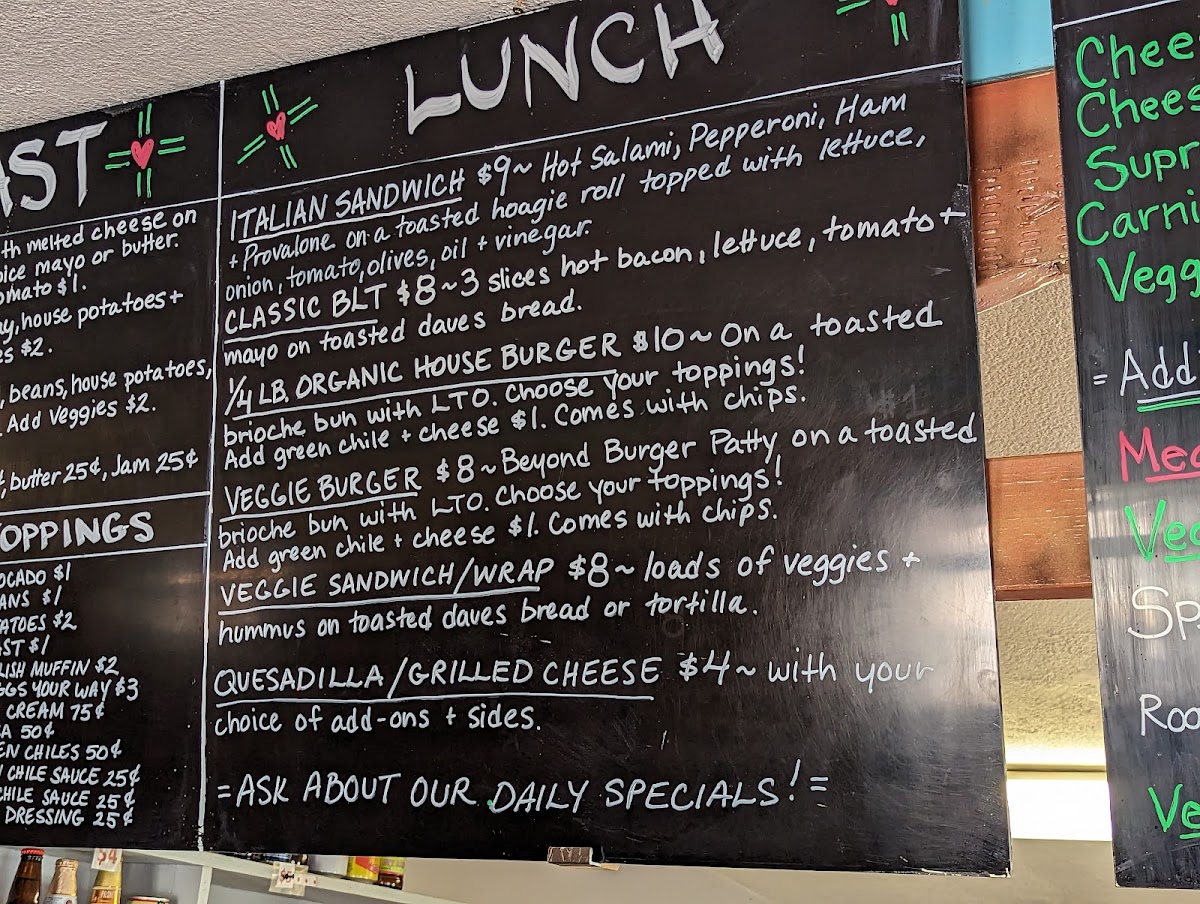 LUNCH
ITALIAN SANDWICH $9~ Hot Salami, Pepperoni, Ham
+ Provalone on a toasted hoagie roll topped with lettuce,
onion, tomato, olives, oil + vinegar.
CLASSIC BLT $8~3 slices hot bacon, lettuce, tomato +
mayo on toasted daves bread.
1/4 LB. ORGANIC HOUSE BURGER $10~ On a toasted
brioche bun with LTO. Choose your toppings!
Add green chile + cheese $1. Comes with chips.
VEGGIE BURGER $8~Beyond Burger Patty on a toasted
brioche bun with LTO. Choose your toppings!
Add green chile + cheese $1. Comes with chips.
VEGGIE SANDWICH/WRAP $8~ loads of veggies +
hummus on toasted daves bread or tortilla.
QUESADILLA/GRILLED CHEESE $4~ with your
choice of add-ons + sides.
=ASK ABOUT OUR DAILY SPECIALS!=
AST
th melted cheese on
oice mayo or butter.
omato $1.
ay, house potatoes +
es $2.
, beans, house potatoes,
. Add Veggies $2.
, butter 25¢, Jam 25¢
OPPINGS
OCADO $1
ANS $1
ATOES $2
ST $1
LISH MUFFIN $2
GGS YOUR WAY $3
CREAM 75¢
A 50¢
EN CHILES 50¢
CHILE SAUCE 25¢
CHILE SAUCE 25¢
DRESSING 25¢
$4
Chee
Chees
Supr
Carni
Vegg
= Add
Mea
Veg
Sp
Roa
Ve